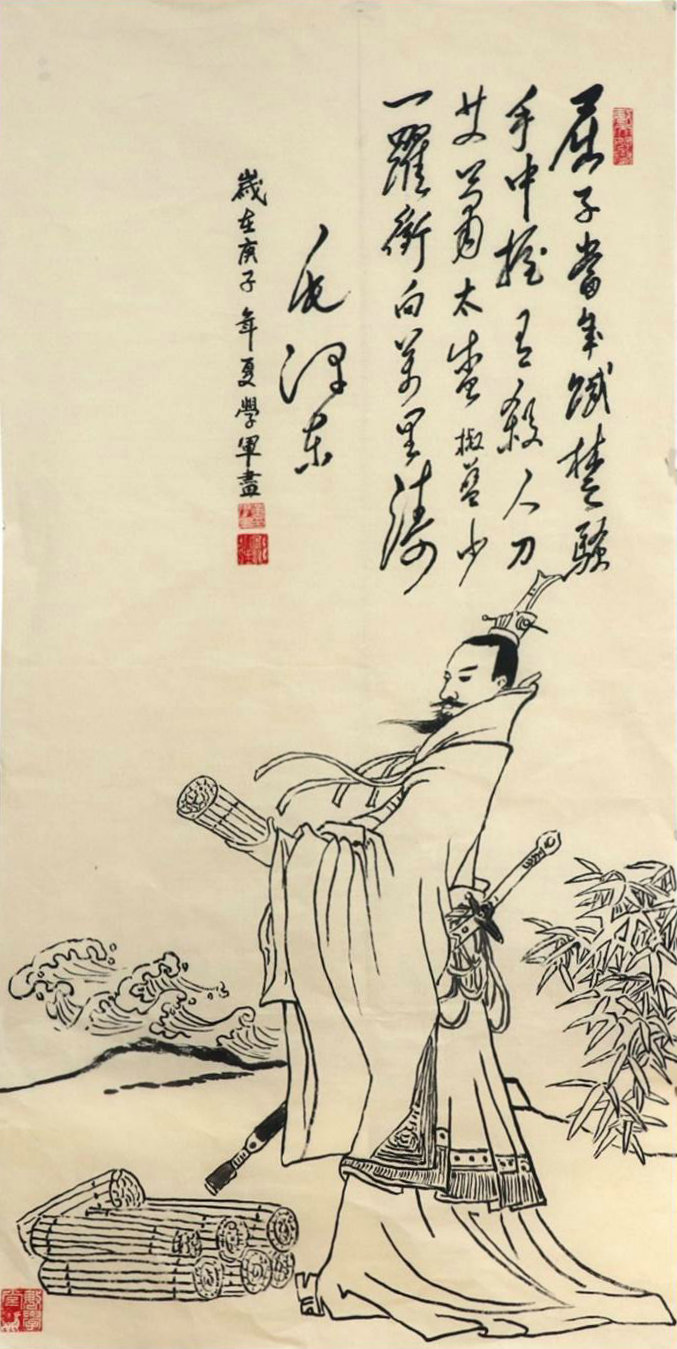 屈子當年賦楚騷
手中握有殺人刀
艾蕭太盛椒蘭少
一躍衝向萬里濤
毛澤东
歲在庚子年夏學軍畫